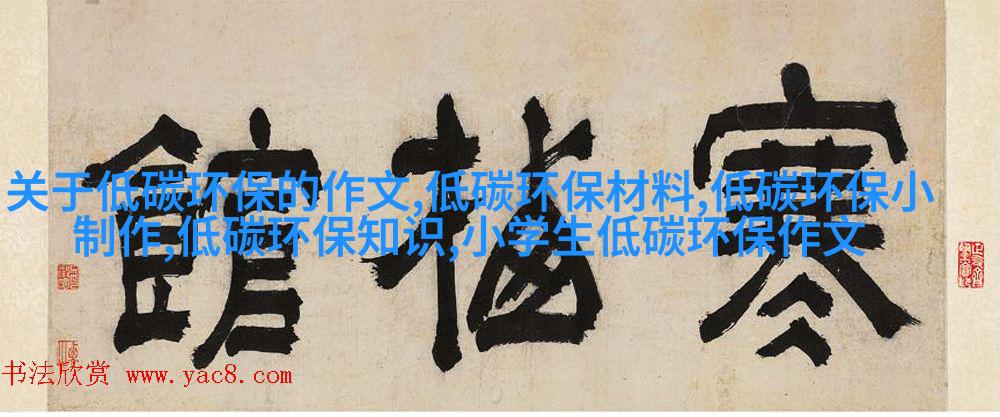 寒栖館
关于低碳环保的作文,低碳环保材料,低碳环保小
制作,低碳环保知识,小学生低碳环保作文
书法欣赏 www.yac8.com